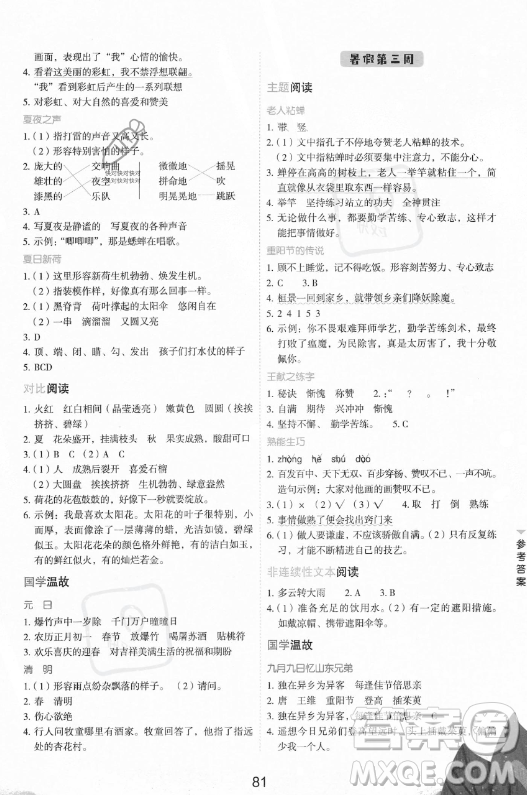 面，表现出了“我”心情的愉快。
4. 看着这美丽的彩虹，我不禁浮想联翩。
5. 对彩虹、对大自然的喜爱和赞美。
夏夜之声
1.（1）指打雷的声音又高又长。
（2）形容特别害怕的样子。
2. 庞大的 交响曲 微微地 摇晃
雄壮的 夜空 拼命地 吹
漆黑的 乐队 明晃晃地 跳跃
3. A
4. 写夏夜是静谧的 写夏夜的各种声音
5. 示例：“唧唧唧”，那是蟋蟀在唱歌。
夏日新荷
1.（1）这里形容新荷生机勃勃、焕发生机。
（2）形容做事情很认真，好像真有那么一回事一样。
2.（1）黑脊背 荷叶撑起的太阳伞 悠闲自在
（2）一串 滴溜溜 又圆又亮
3. D
4. 顶、端、闭、蹬、勾 出发 孩子们打水仗的样子
5. BCD
对比阅读
1. 火红 红白相间（晶莹透亮） 嫩黄色 圆圆（挨挨
挤挤、碧绿）
2. 夏 花朵盛开，挂满枝头 秋 果实成熟，颜色鲜艳
3.（1）人 成熟后裂开 喜爱石榴
（2）大圆盘 挨挨挤挤 生机勃勃、绿意盎然
4. C
5. 荷花的花苞鼓鼓的，好像已经迫不及待要绽放。
6. 示例：我喜欢太阳花。太阳花的叶子很特别，小而
厚，油绿的表面像涂了一层薄薄的蜡，光洁如镜，碧
绿如玉。太阳花花朵的颜色格外鲜艳，有的洁白如雪，
有的鲜红似火，有的灿烂若金。
国学温故
元 日
1. 爆竹声中一岁除 千门万户曈曈日
2. 农历正月初一 春节 放爆竹 喝屠苏酒 贴桃符
3. 欢乐喜庆的喜爱 对吉祥美满生活的追求和祝愿
清 明
1.（1）形容雨点纷杂飘落的样子。（2）请问。
2. 春 清明
3. 伤心欲绝
4. 行人问牧童哪里有酒家。牧童回答了他，指了指远
处的杏花村。
暑假第三周
主题阅读
老人粘蝉
1. 带 竖
2.（1）文中指孔子不停地夸赞老人粘蝉的技术高。
（2）文中指粘蝉时必须一动不动，专心致志。
3. 蝉停在高高的树枝上，老人一举竿就粘住它，就好
像从衣袋里取东西一样容易。
4. 举竿 坚持练习站立的功夫 全神贯注
5. 无论做什么事，都要勤学苦练，专心致志，这样才
能把事情做好。
重阳节的传说
1. 顾不上睡觉，记不得吃饭。形容非常努力、专心致志
2. A 3. B
4. 桓景一回到家乡，就带领乡亲们降妖除魔。
5. 2 4 1 5 3
6. 示例：你不畏艰难拜师学艺，勤学苦练到夜深，终
于打败了瘟魔，为人民带来了幸福，我十分敬
佩你。
王献之练字
1. 秘诀 惭愧 称赞 2. ：“ ？ ”
3. 自满 期待 兴冲冲 惭愧
4. 坚持不懈、勤学苦练。 5. C
熟能生巧
1. zhòng hé shú dào
2. 百发百中，天下无双，百步穿杨，赞叹不已，一声不吭。
造句示例：大家对他画的画赞叹不已。
3.（1）×（2）√（3）√ 4. 取 打 倒 熟练
5. 事情做熟了便会找出窍门来
6.（1）做人要谦虚，不要骄傲自满。（2）只有反复练
习，才能掌握真正的技艺。
非连续性文本阅读
1. 多云转大雨 2. A 3. B
4.（1）准备充足的饮用水。（2）准备一定的遮阳措施，
如戴遮阳帽、打遮阳伞等。
国学温故
九月九日忆山东兄弟
1. 独在异乡为异客 每逢佳节倍思亲
2. 唐 王维 重阳节 登高 插茱萸
3. 独在异乡为异客，每逢佳节倍思亲。 C
参考答案
81
答案圈
MXQE.COM